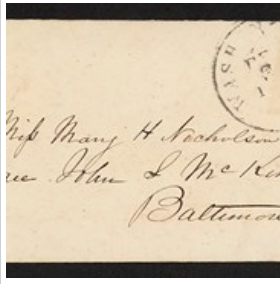 WASH
Miss Mary H Nicholson
John S McKi
Baltimor